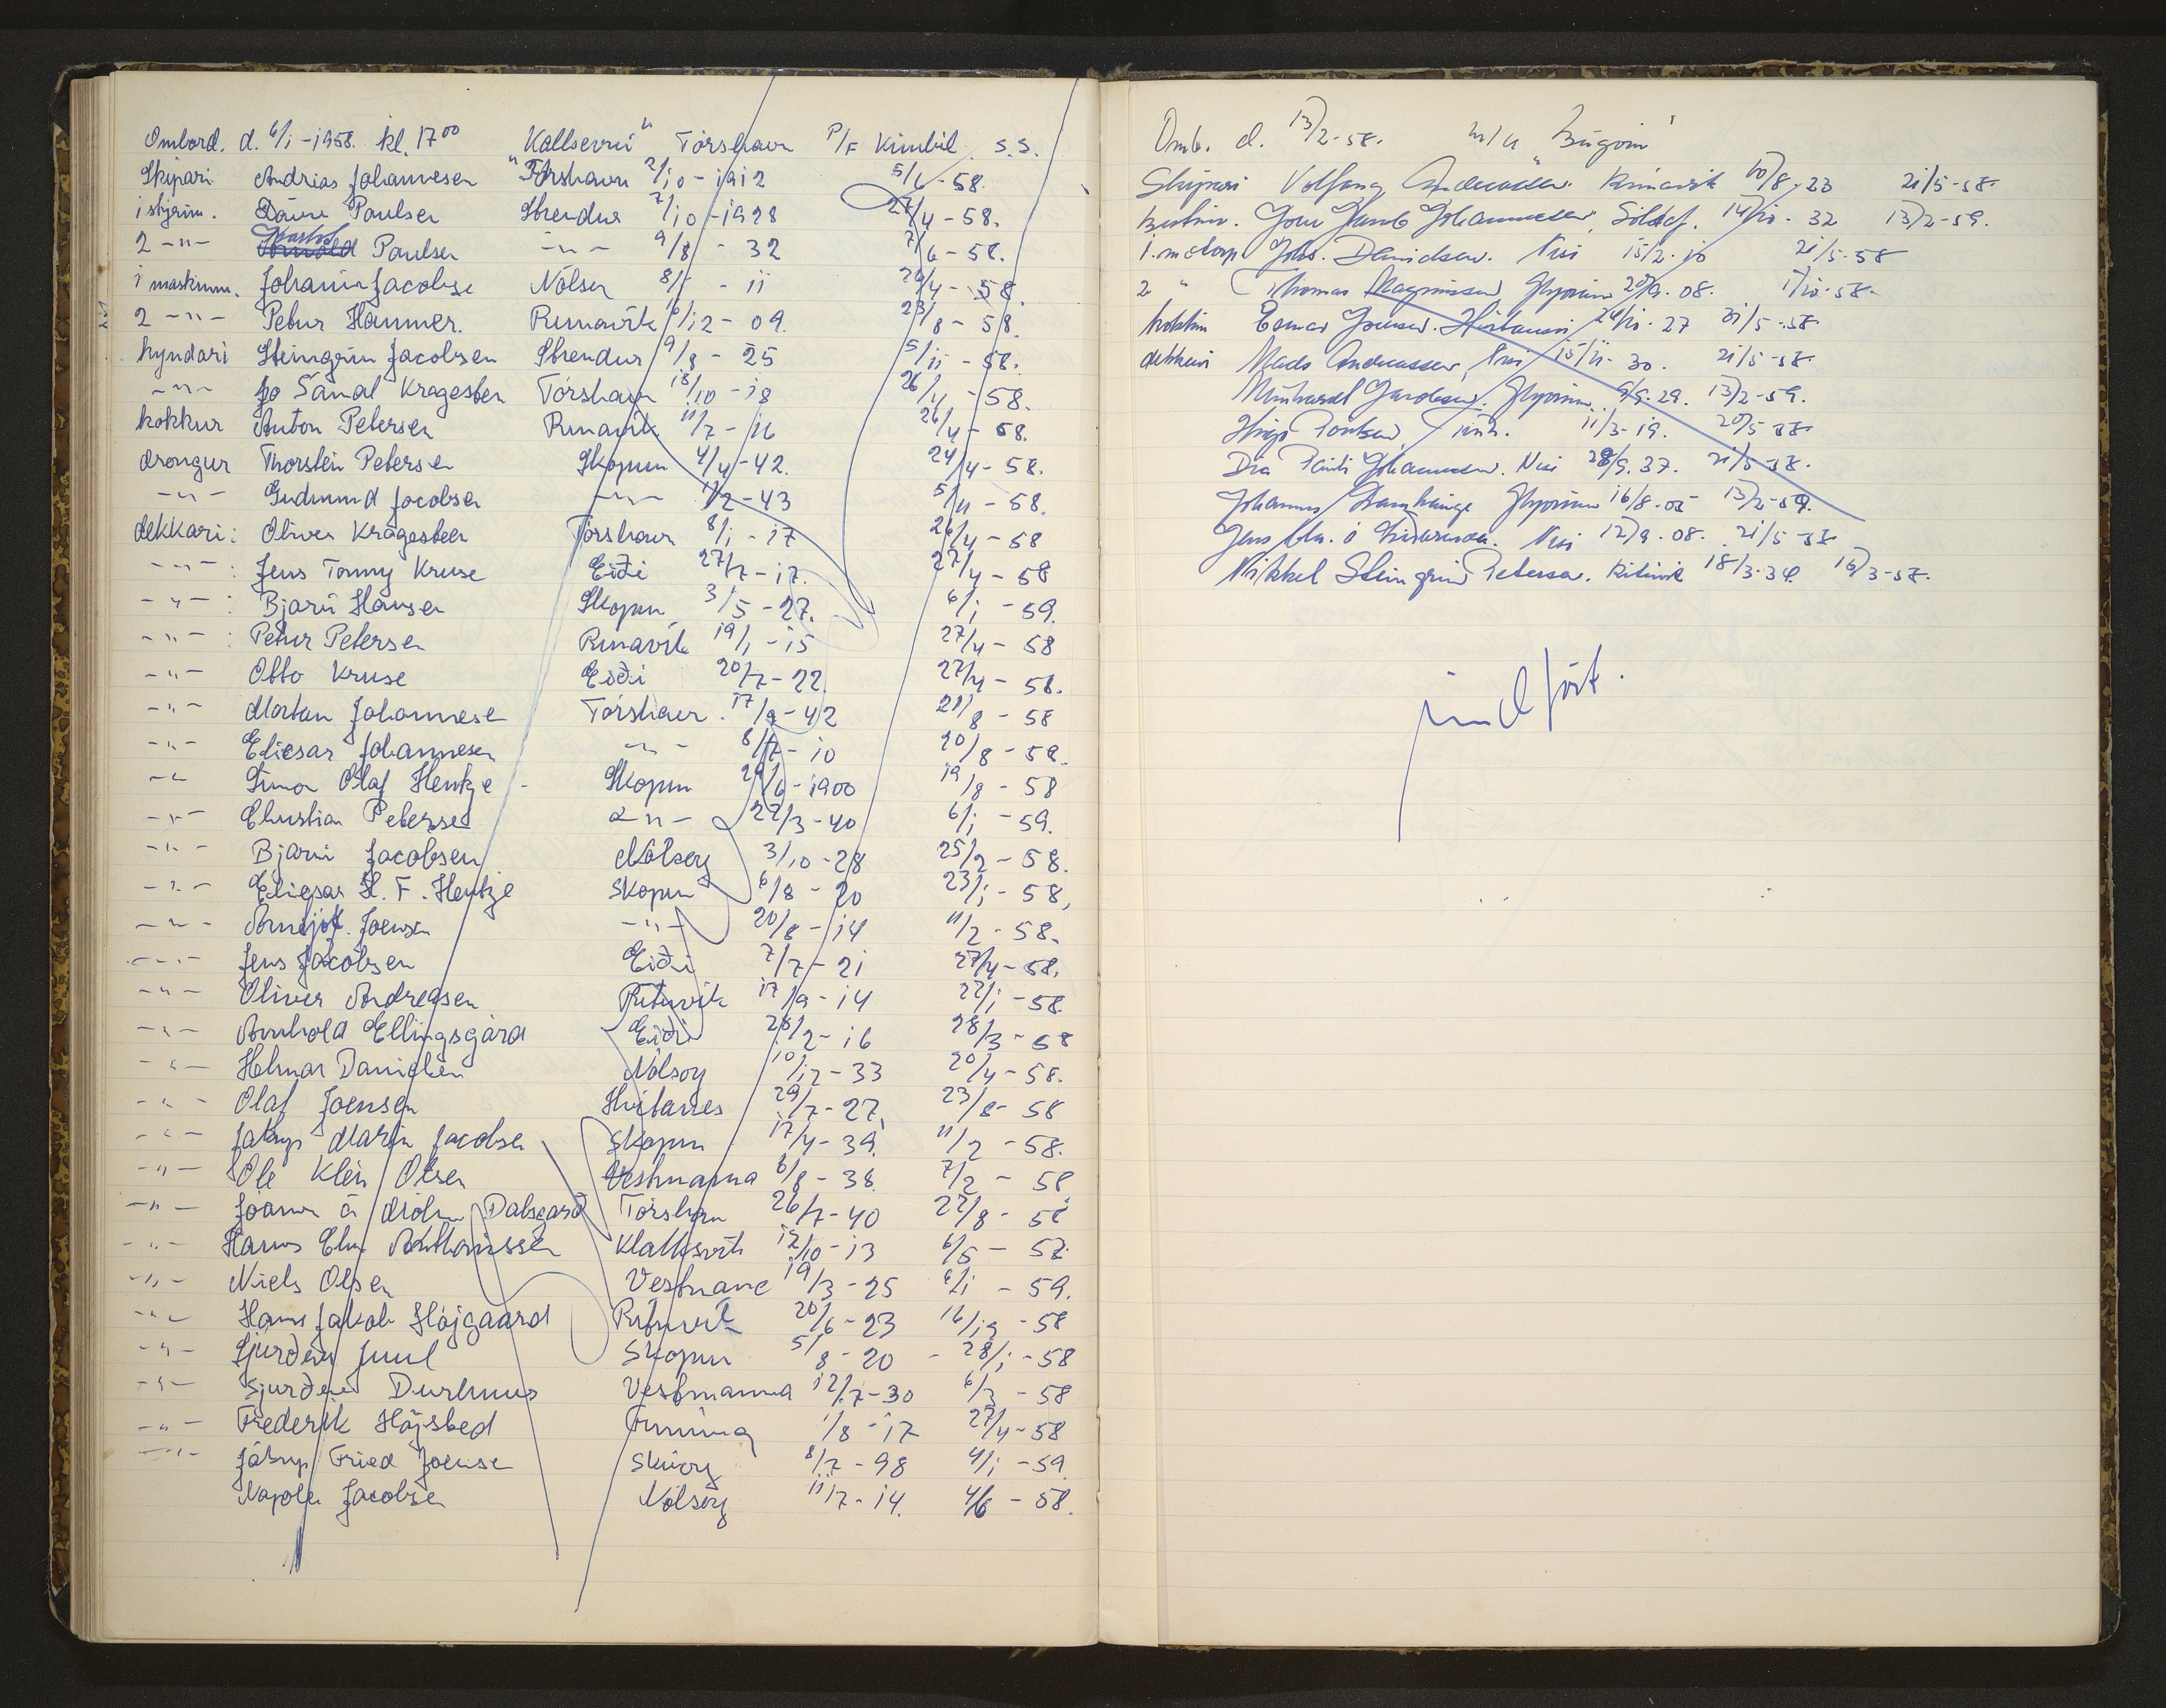 Ombord. d. 6/1 - 1958. kl. 17⁰⁰ "Kallsevni" Tórshavn P/F Kimbil. S.S.
Skipari Andrias Johannesen Tórshavn 2/10 - 1912 5/6 - 58.
1 stýrim. Paulsen Strendur 7/10 - 1928 27/4 - 58.
2 -"- Paulsen -"- 9/8 - 32 7/6 - 58.
1 maskinm. Johannis Jacobsen Nólsoy 8/1 - 11 26/4 - 58.
2 -"- Petur Hammer. Runavík /12 - 09. 23/8 - 58.
kyndari Steingrim Jacobsen Strendur 9/8 - 25 5/11 - 58.
-"- Jo Sámal Kragesteen Tórshavn 18/10 - 18 26/4 - 58.
kokkur Anton Petersen Runavík 11/7 - 16 26/4 - 58.
drongur Thorstein Petersen Skopun 4/4 - 42. 24/4 - 58.
-"- Gudmund Jacobsen -"- 1/2 - 43 5/11 - 58.
dekkari: Oliver Krágesteen Tórshavn 8/1 - 17 26/4 - 58
-"-: Jens Tommy Kruse Eiði 27/7 - 17. 27/4 - 58
-"-: Bjarni Hansen Skopun 3/5 - 27. 6/1 - 59.
-"-: Petur Petersen Runavík 19/1 - 15 27/4 - 58
-"- Otto Kruse Eiði 20/7 - 22. 27/4 - 58.
-"- Mortan Johannesen Tórshavn. 17/9 - 42 21/8 - 58
-"- Eliesar Johannesen -"- 8/7 - 10 20/8 - 58.
-"- Simon Olaf Hentze - Skopun 29/6 - 1900 19/8 - 58
-"- Christian Petersen -"- 22/3 - 40 6/1 - 59.
-"- Bjarni Jacobsen Nólsoy 3/10 - 28 25/2 - 58.
-"- Eliesar H. F. Hentze Skopun 6/8 - 20 23/1 - 58,
-"- Joensen -"- 20/8 - 14 11/2 - 58.
-"- Jens Jacobsen Eiði 7/7 - 21 27/4 - 58.
-"- Oliver Andreasen Rituvík 17/9 - 14 22/1 - 58.
-"- Arnhold Ellingsgård Eiði 28/2 - 16 28/3 - 58
-"- Helmar Danielsen Nólsoy 10/12 - 33 20/4 - 58.
-"- Olaf Joensen Hvítanes 29/7 - 27. 23/8 - 58
-"- Jákup Marin Jacobsen Skopun 17/4 - 39. 11/2 - 58.
-"- Ole Klein Olsen Vestmanna 6/8 - 38. 7/2 - 58
-"- Jóannes á Dalsgarð Tórshavn 26/7 - 40 22/8 - 58
-"- Hans Chr. Klakksvík 12/10 - 13 6/5 - 58.
-"- Niels Olsen Vestmanna 19/3 - 25 6/1 - 59.
-"- Hans Jakob Højgaard Rituvík 20/6 - 23 16/12 - 58
-"- Sjúrður Juul Skopun 5/8 - 20 - 28/1 - 58
-"- Sjurður Durhuus Vestmanna 12/7 - 30 6/2 - 58
-"- Frederik Højsted Funning 1/8 - 17 27/4 - 58
-"- Jákup Fried Joensen Skúvoy 8/7 - 98 4/1 - 59.
Napolen Jacobsen Nólsoy 11/7 - 14. 4/6 - 58.
Omb. d. 13/2 - 58. m/k "Búgvin"
Skipari Volfang Andreasen. Runavik 10/8 - 23 21/5 - 58.
bestm. Jóan Jacob Johannesen, Söldef. 14/10 - 32 13/2 - 59.
1. motorp Johs. Danielsen. Nesi 15/2 - 10 21/5 - 58
2 " Thomas Magnussen, Glyvrum 20/9 - 08. 1/10 - 58.
kokkin Joensen. Hvítanesi 27 21/5 - 58
dekkari Mads Andreassen, Nesi 15/11 - 30. 21/5 - 58.
Meinhardt Jacobsen. Glyvrum. 9/9 - 29. 13/2 - 59.
Poulsen, 11/3 - 19. 20/5 - 58
Dia Pauli Johannesen. Nesi 28/9. 37. 21/5 - 58.
Johannes Glyvrum 16/8 - 05 13/2 - 59.
Jens Chr. á Nesi 12/9 - 08. 21/5 - 58
Nikkel Steingrim Petersen. Rituvík 18/3 - 34 16/3 - 58.
indført.